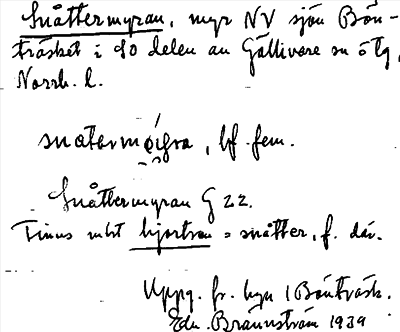 Snåttermyran, myr NV sjön Bön-
träsket i SO delen av Gällivare sn ö lg,
Norrb. l.
snatermøigra, bf. fem.
Snåttermyran G 22.
Finns rikt hjortron = snåtter, f. där.
Uppg. fr. byn i Bönträsk.
Edv. Brännström 1939